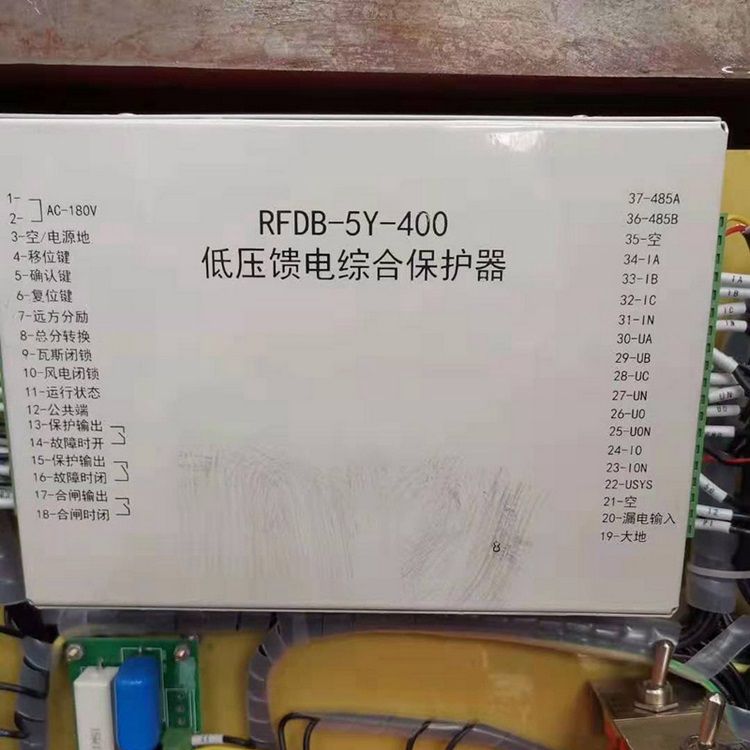 1-
2-
AC-180V
3-空/电源地
4-移位键
5-确认键
6-复位键
7-远方分励
8-总分转换
9-瓦斯闭锁
10-风电闭锁
11-运行状态
12-公共端
13-保护输出
14-故障时开
15-保护输出
16-故障时闭
17-合闸输出
18-合闸时闭
RFDB-5Y-400
低压馈电综合保护器
8
37-485A
36-485B
35-空
34-IA
33-IB
32-IC
31-IN
30-UA
29-UB
28-UC
27-UN
26-U0
25-U0N
24-I0
23-I0N
22-USYS
21-空
20-漏电输入
19-大地
IA
IB
IC
IN
UN